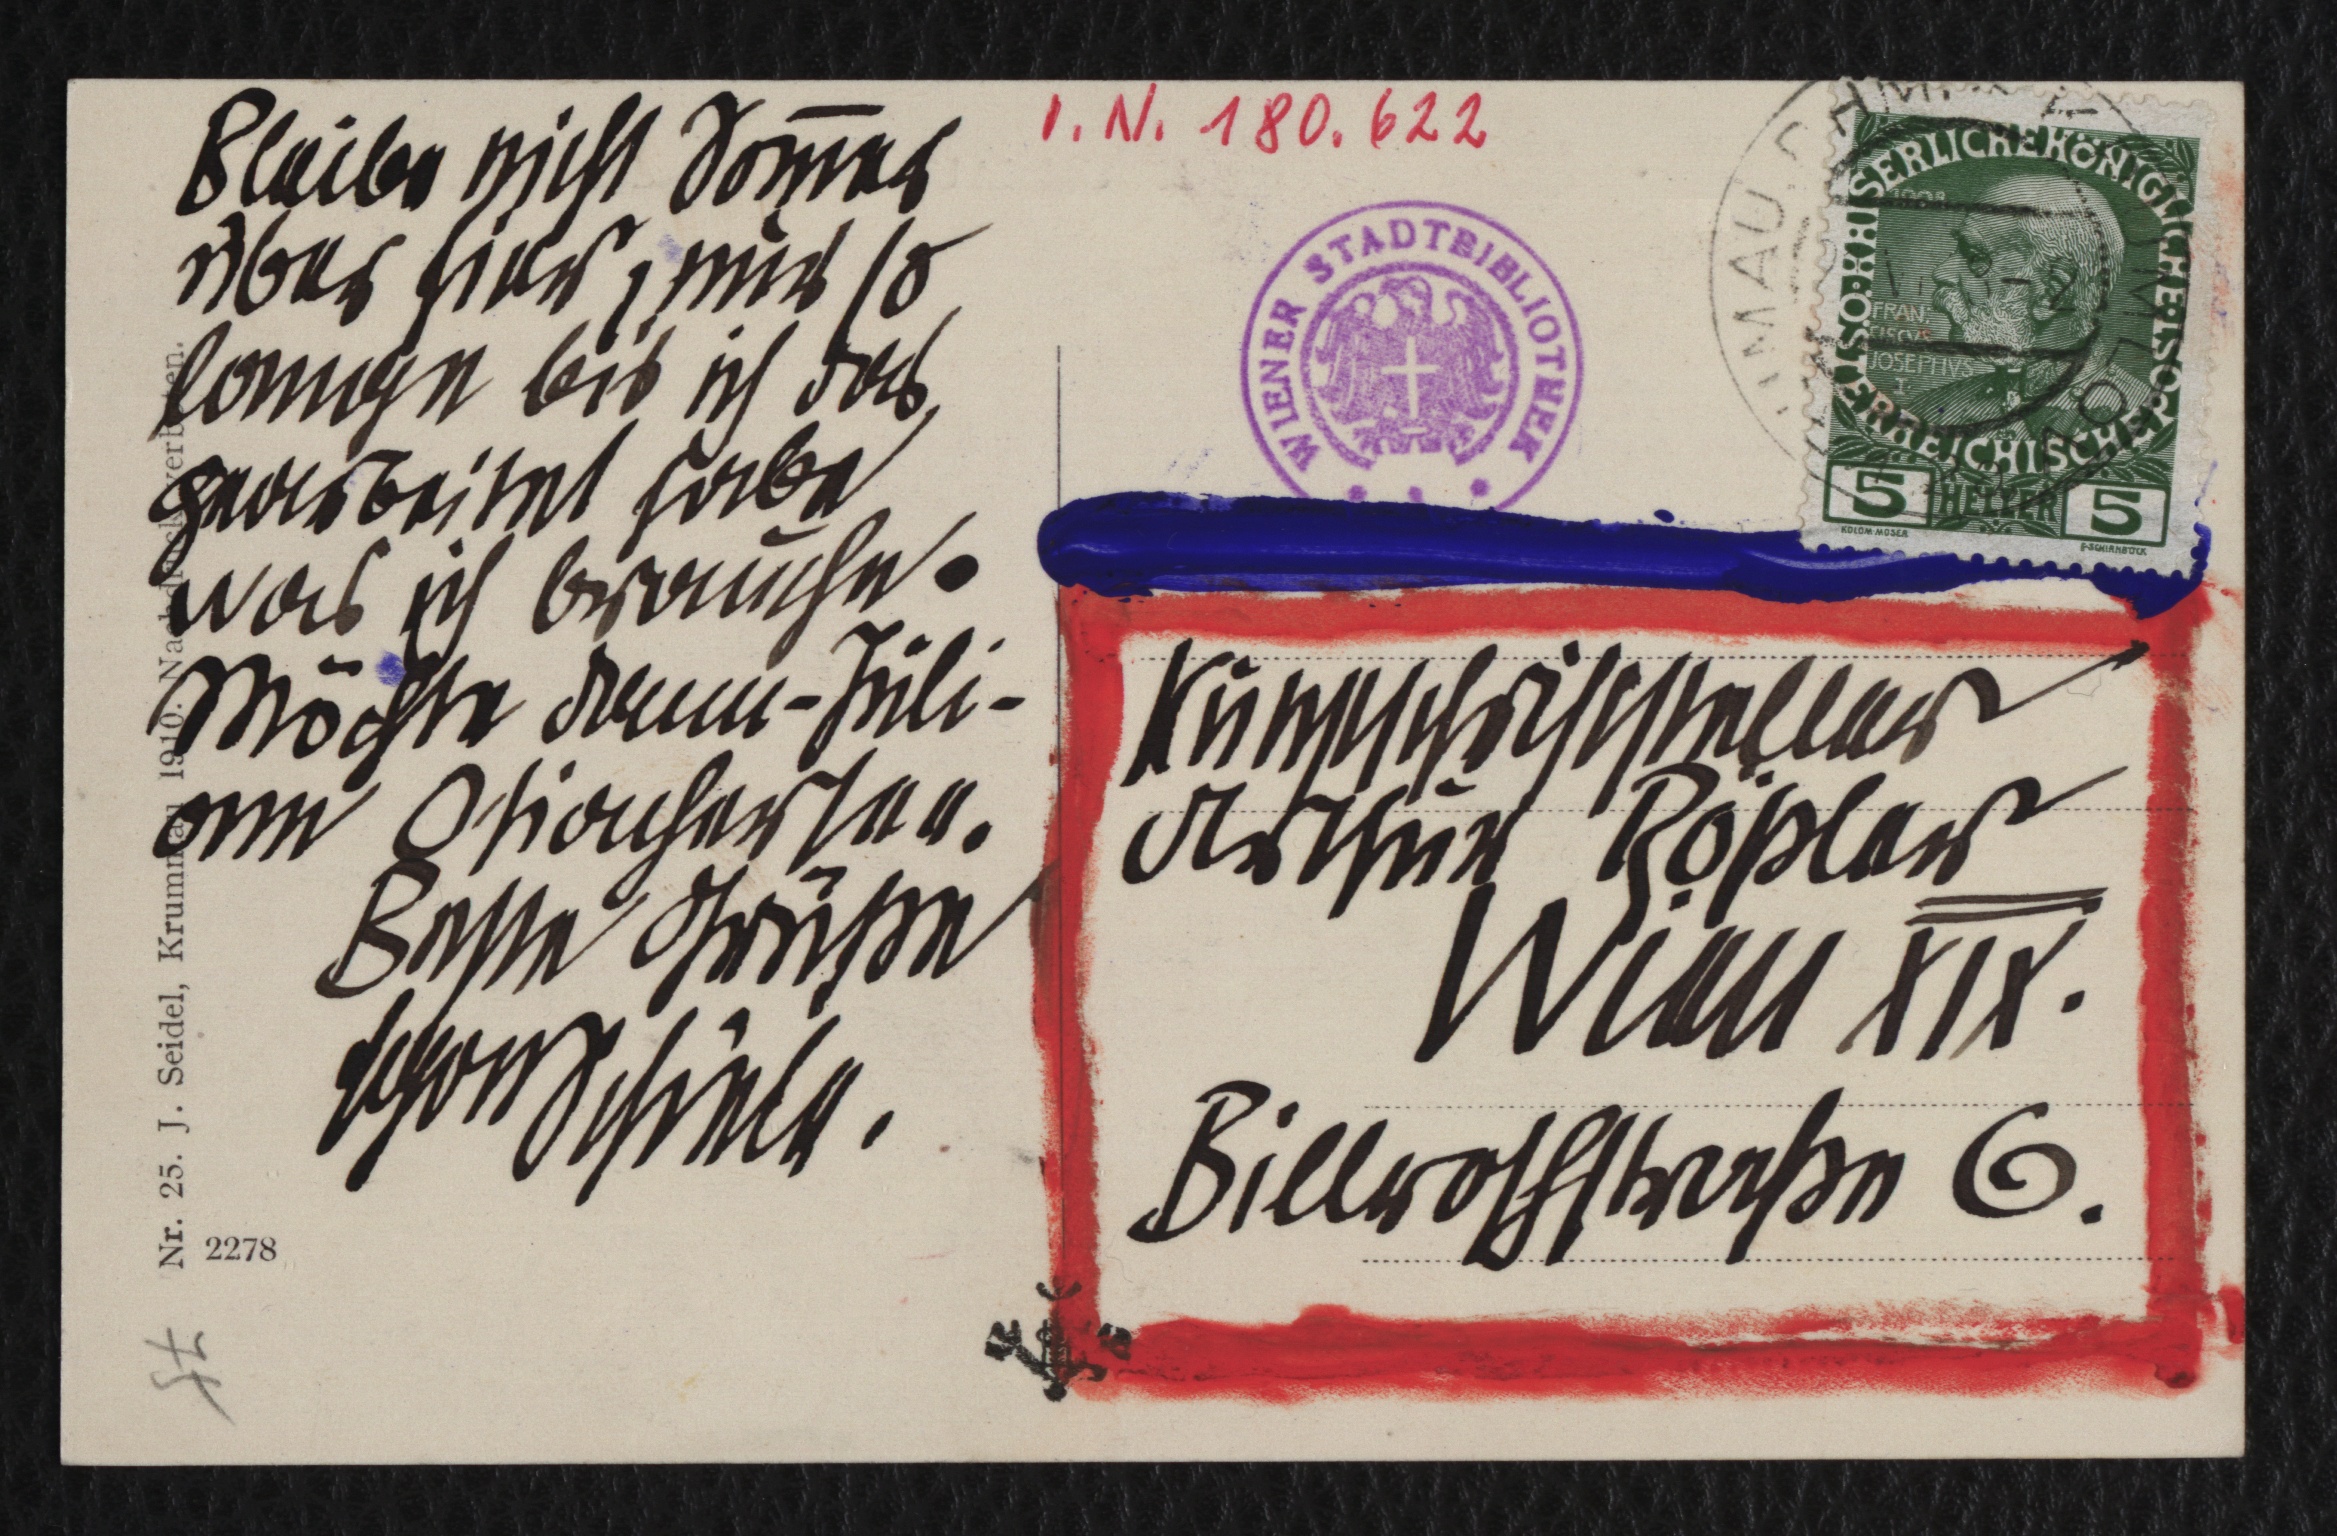 Bleibe nicht Som̅er
über hier, nur so
lange bis ich das
gearbeitet habe
was ich brauche.
Möchte dann - Juli -
am Ossiachersee.
Beste Grüße
Egon Schiele.
Nr. 25. J. Seidel, Krummau 1910. Nachdruck verboten.
2278
I.N. 180.622
WIENER STADTBIBLIOTHEK
KAISERLICHE KÖNIGLICHE ÖSTERREICHISCHE POST
1908
FRAN
CISCVS
JOSEPHVS
I
5 HELLER 5
KOLOM. MOSER
F. SCHIRNBÖCK
Kunstschriftsteller
Arthur Rößler
Wien XIX.
Billrothstraße 6.